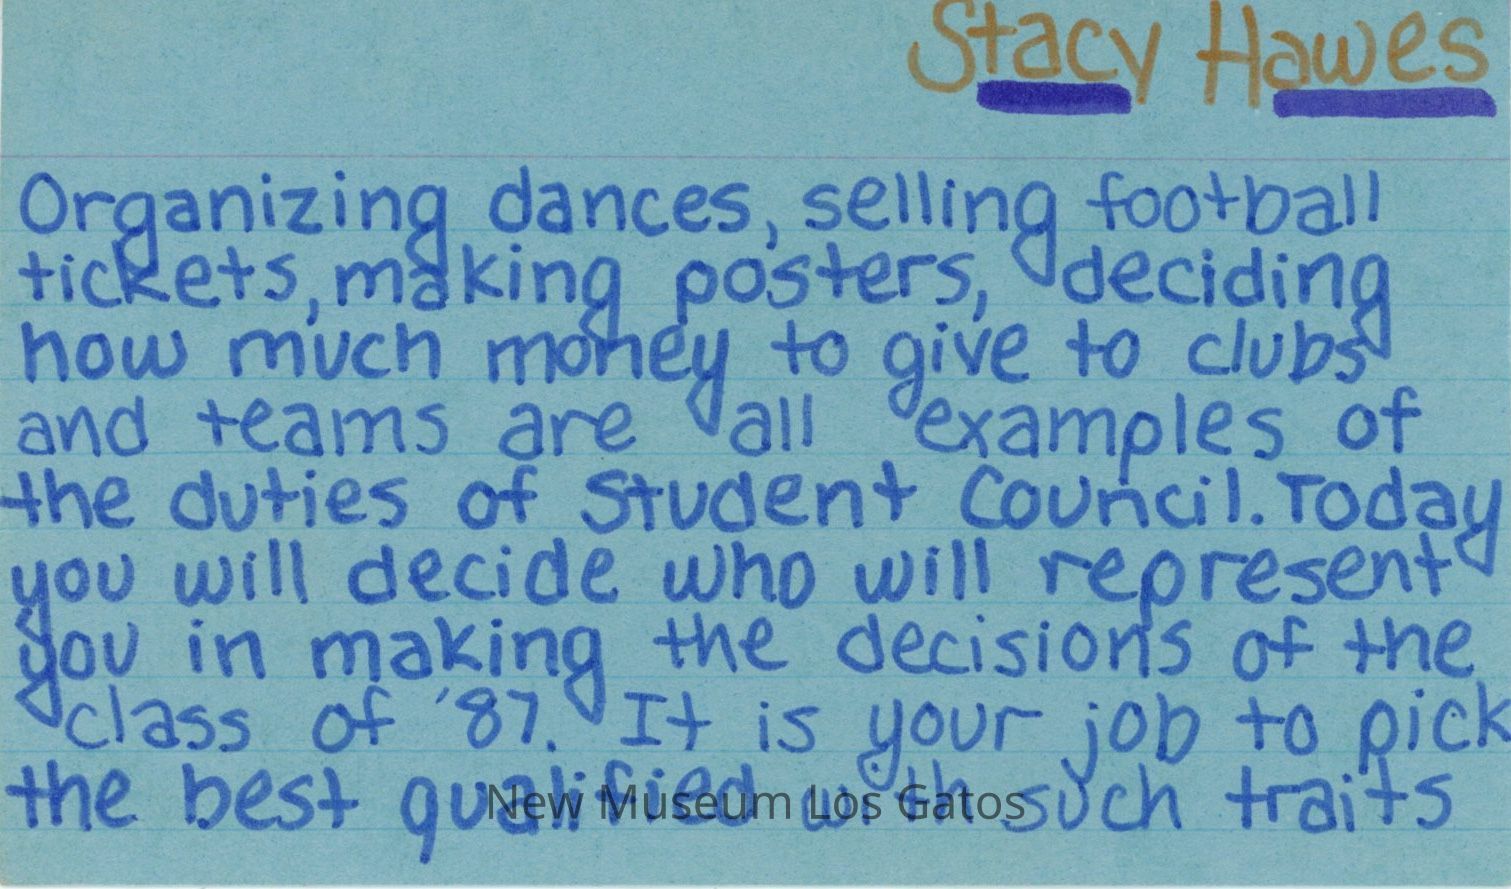 Stacy Hawes
Organizing dances, selling football
tickets, making posters, deciding
how much money to give to clubs
and teams are all examples of
the duties of Student Council. Today
you will decide who will represent
you in making the decisions of the
class of '87. It is your job to pick
the best qualified with such traits
New Museum Los Gatos